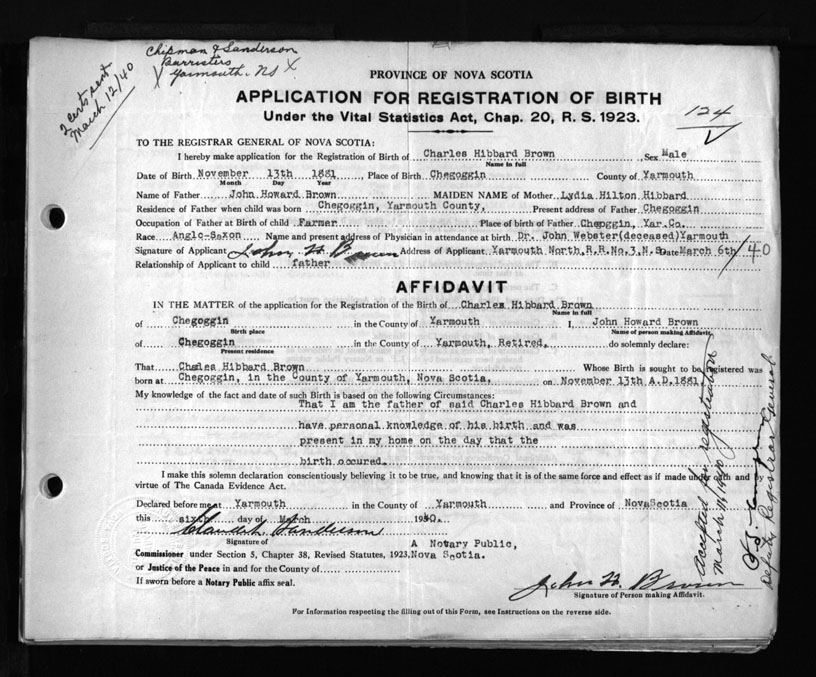 Chipman & Sanderson
Barristers
Yarmouth, NS
2 certs sent
March 12/40
PROVINCE OF NOVA SCOTIA
APPLICATION FOR REGISTRATION OF BIRTH
Under the Vital Statistics Act, Chap. 20, R. S. 1923.
124
TO THE REGISTRAR GENERAL OF NOVA SCOTIA:
I hereby make application for the Registration of Birth of Charles Hibbard Brown, Sex Male
Name in full
Date of Birth November 13th 1881, Place of Birth Chegoggin County of Yarmouth
Month Day Year
Name of Father John Howard Brown MAIDEN NAME of Mother Lydia Hilton Hibbard
Residence of Father when child was born Chegoggin, Yarmouth County, Present address of Father Chegoggin
Occupation of Father at Birth of child Farmer Place of birth of Father Cheggin, Yar.Co.
Race Anglo-Saxon Name and present address of Physician in attendance at birth Dr. John Webster(deceased)Yarmouth
Signature of Applicant John H Brown Address of Applicant Yarmouth North, R.R.No.3, N.S. Date March 6th/40
Relationship of Applicant to child father
AFFIDAVIT
IN THE MATTER of the application for the Registration of the Birth of Charles Hibbard Brown
Name in full
of Chegoggin in the County of Yarmouth I, John Howard Brown
Birth place Name of person making Affidavit.
of Chegoggin in the County of Yarmouth, Retired, do solemnly declare:
Present residence
That Charles Hibbard Brown Whose Birth is sought to be registered was
born at Chegoggin, in the County of Yarmouth, Nova Scotia, on November 13th A.D.1881
My knowledge of the fact and date of such Birth is based on the following Circumstances:
That I am the father of said Charles Hibbard Brown and
have personal knowledge of his birth and was
present in my home on the day that the
birth occured.
I make this solemn declaration conscientiously believing it to be true, and knowing that it is of the same force and effect as if made under oath and by
virtue of The Canada Evidence Act.
Declared before me at Yarmouth in the County of Yarmouth and Province of NovaScotia
this sixth day of March 1940.
Signature of
A Notary Public,
Commissioner under Section 5, Chapter 38, Revised Statutes, 1923, Nova Scotia.
or Justice of the Peace in and for the County of
If sworn before a Notary Public affix seal.
John H. Brown
Signature of Person making Affidavit.
For Information respecting the filling out of this Form, see Instructions on the reverse side.
accepted for registration
March 11, 1940
Deputy Registrar General